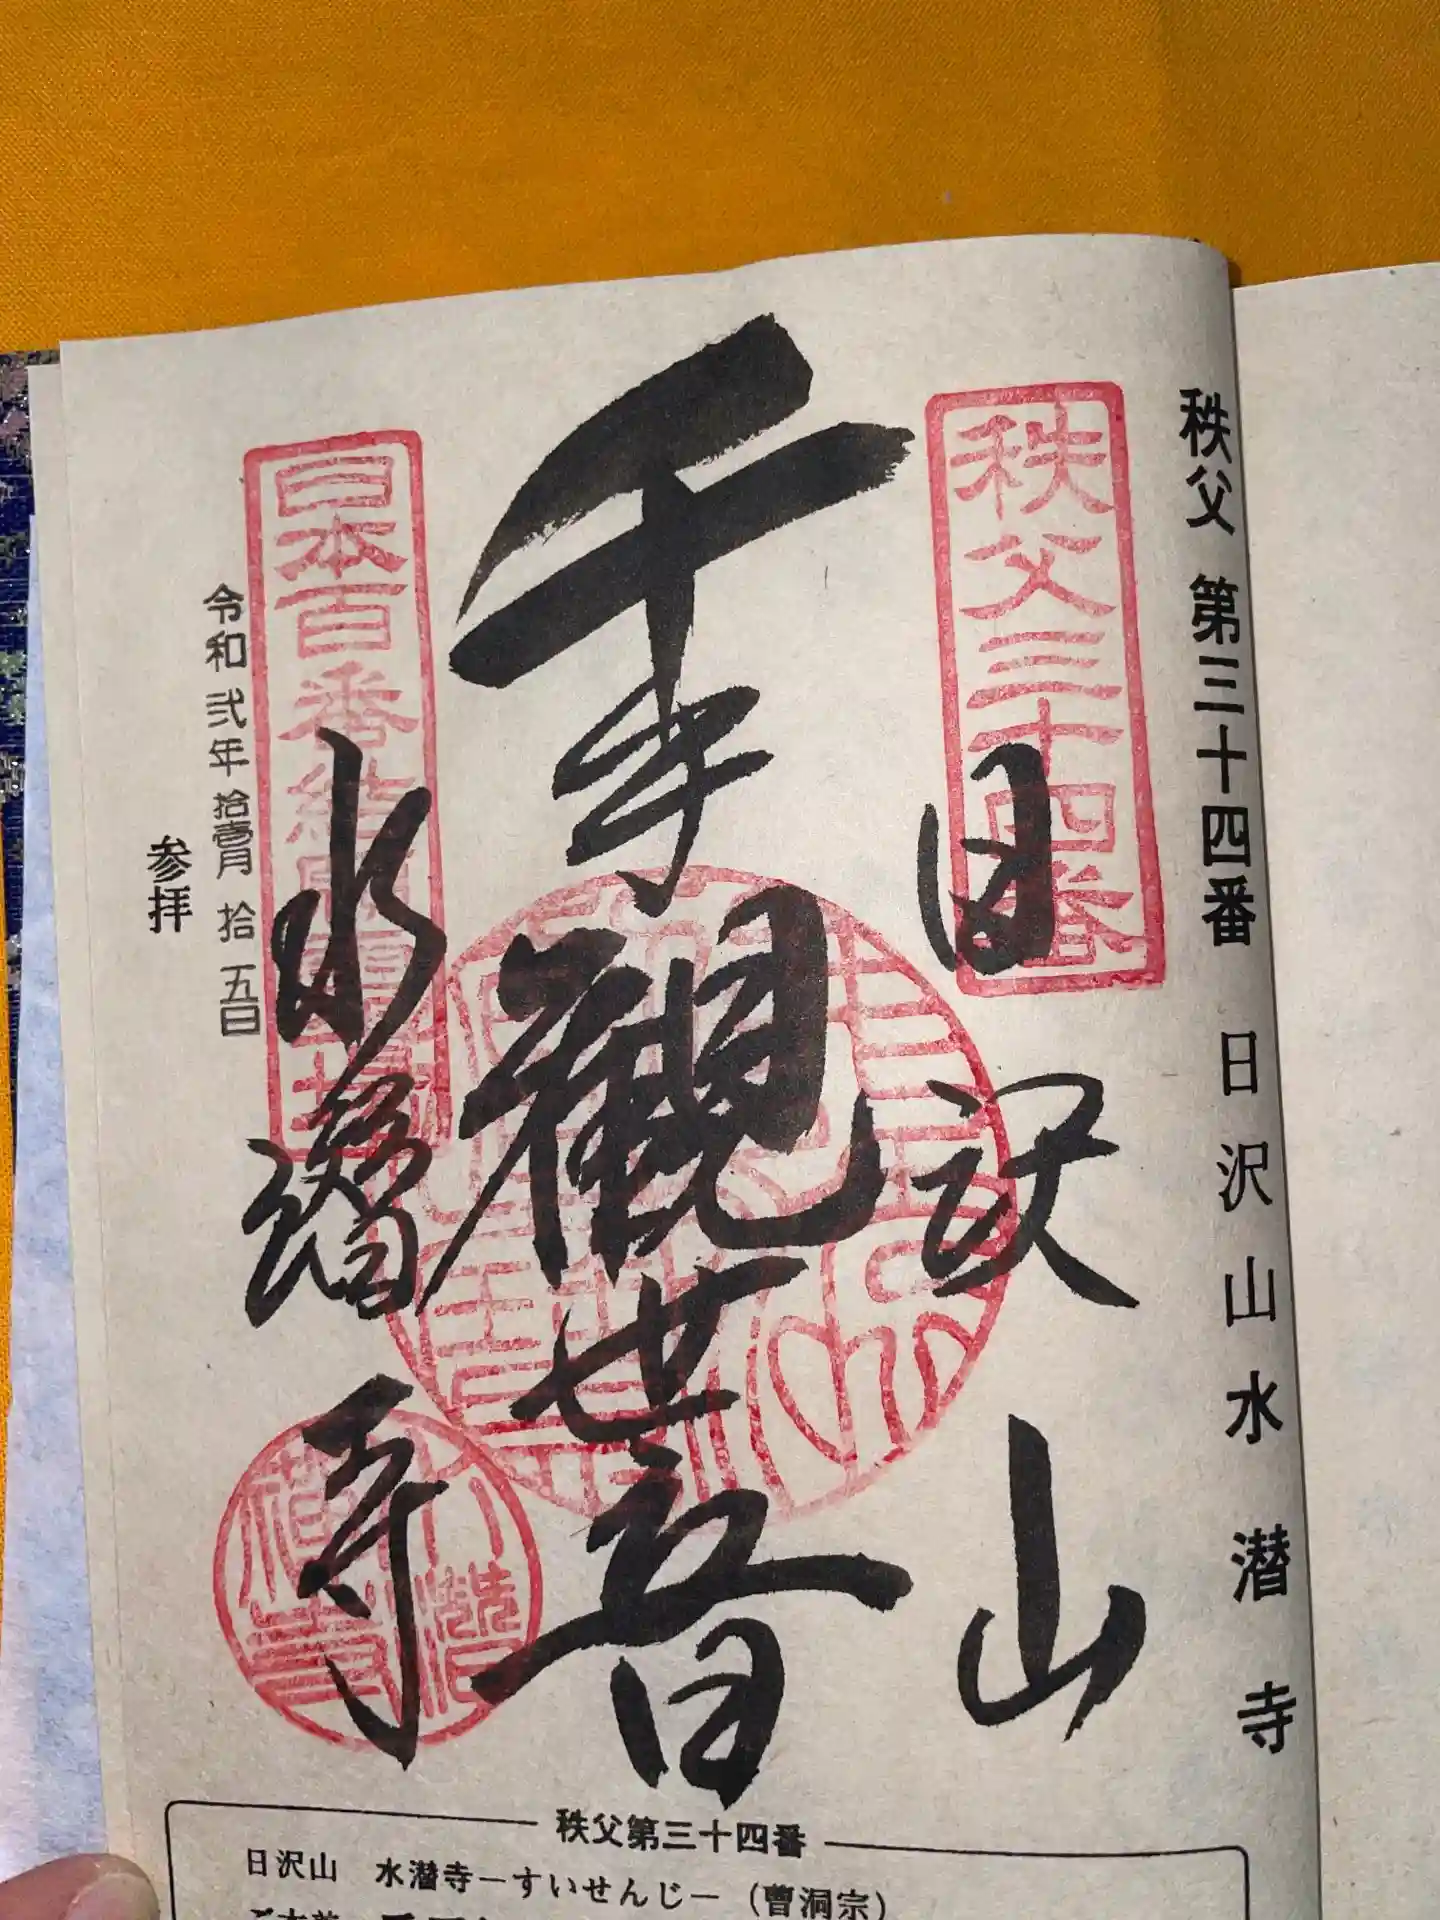 秩父 第三十四番 日沢山水潜寺
秩父三十四番
日沢山
千手観世音
水潜寺
日本百番結願霊場
令和弐年拾壱月拾五日
参拝
秩父第三十四番
日沢山 水潜寺ーすいせんじー（曹洞宗）